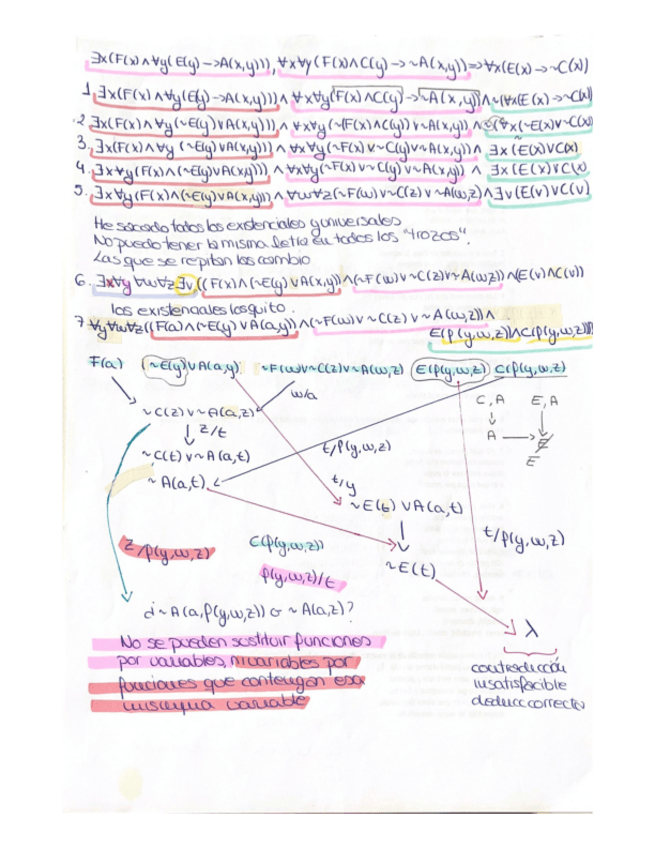 ∃x(F(x)∧∀y(E(y)->A(x,y))), ∀x∀y(F(x)∧C(y)->~A(x,y))=>∀x(E(x)->~C(x)
1. ∃x(F(x)∧∀y(E(y)->A(x,y)))∧ ∀x∀y(F(x)∧C(y)->~A(x,y))∧~(∀x(E(x)->~C(x)
2. ∃x(F(x)∧∀y(~E(y)∨A(x,y))∧ ∀x∀y(~(F(x)∧C(y))∨~A(x,y))∧~(∀x(~E(x)∨~C(x)
3. ∃x(F(x)∧∀y(~E(y)∨A(x,y))∧ ∀x∀y(~F(x)∨~C(y)∨~A(x,y))∧ ∃x(E(x)∨C(x)
4. ∃x∀y(F(x)∧(~E(y)∨A(x,y))) ∧ ∀x∀y(~F(x)∨~C(y)∨~A(x,y)) ∧ ∃x(E(x)∨C(x)
5. ∃x∀y(F(x)∧(~E(y)∨A(x,y)))∧ ∀w∀z(~F(w)∨~C(z)∨~A(w,z))∧∃v(E(v)∨C(v)
He sacado todos los existenciales y universales
No puedo tener la misma letra en todos los "trozos".
Las que se repitan las cambio
6. ∃x∀y∀w∀z∃v((F(x)∧(~E(y)∨A(x,y))∧(~F(w)∨~C(z)∨~A(w,z))∧(E(v)∧C(v))
los existenciales los quito.
7 ∀y∀w∀z((F(a)∧(~E(y)∨A(a,y))∧(~F(w)∨~C(z)∨~A(w,z))∧
E(p(y,w,z))∧C(p(y,w,z)))
F(a) (~E(y)∨A(a,y) ~F(w)∨~C(z)∨~A(w,z) E(p(y,w,z)) C(p(y,w,z))
w/a
C,A E,A
~C(z)∨~A(a,z)
z/t
A
E
~C(t)∨~A(a,t)
t/p(y,w,z)
~A(a,t)
t/y
~E(t)∨A(a,t)
z/p(y,w,z) C(p(y,w,z))
t/p(y,w,z)
~E(t)
p(y,w,z)/t
¿~A(a,p(y,w,z)) o ~A(a,z)?
λ
No se pueden sustituir funciones
por variables, ni variables por
funciones que contengan esa
misma variable
contradicción
insatisfacible
deducc correcta